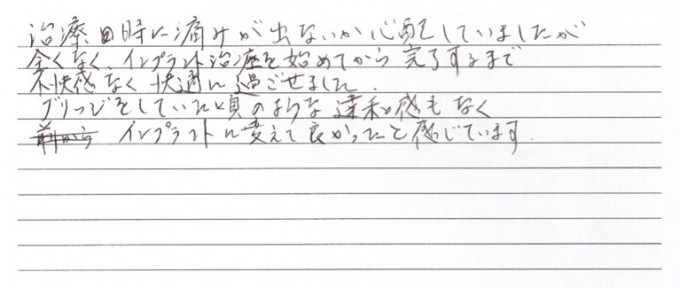 治療時に痛みが出ないか心配していましたが
全くなく、インプラント治療を始めてから完了するまで
不快感なく快適に過ごせました。
ブリッジをしていた頃のような違和感もなく
インプラントに変えて良かったと感じています。